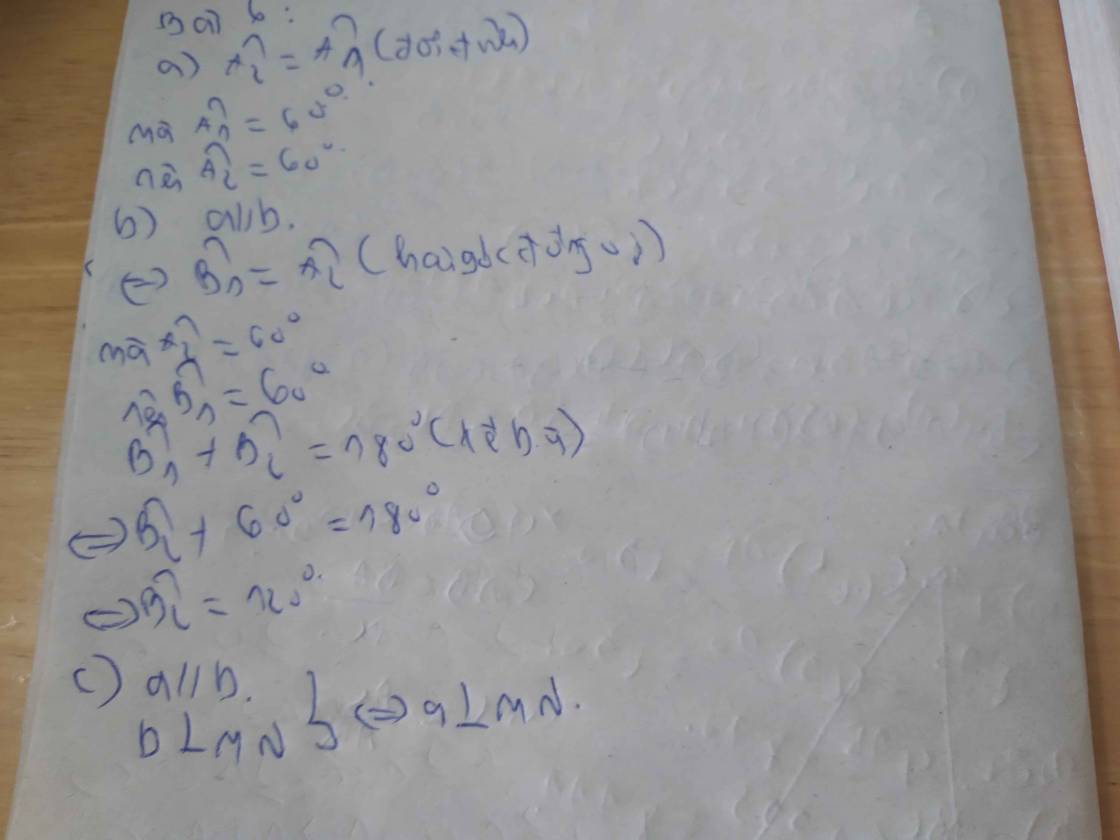 Bài 6:
a) Â₂ = Â₁ (đối đỉnh)
mà Â₁ = 60°.
nên Â₂ = 60°.
b) a//b.
⇔ B̂₁ = Â₂ (hai góc đồng vị)
mà Â₂ = 60°
nên B̂₁ = 60°
B̂₁ + B̂₂ = 180° (kề bù)
⇔ B̂₂ + 60° = 180°
⇔ B̂₂ = 120°.
c) a//b.
b ⊥ MN } ⇔ a ⊥ MN.